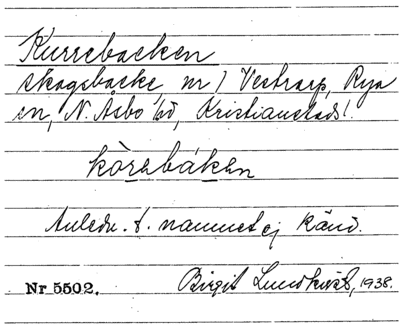 Kurrebacken
skogsbacke nr 1 Vestrarp, Rya
sn, N. Åsbo hd, Kristianstads l.
kòrebáken
Anledn. t. namnet ej känd.
Nr 5502. Birgit Lundkvist, 1938.